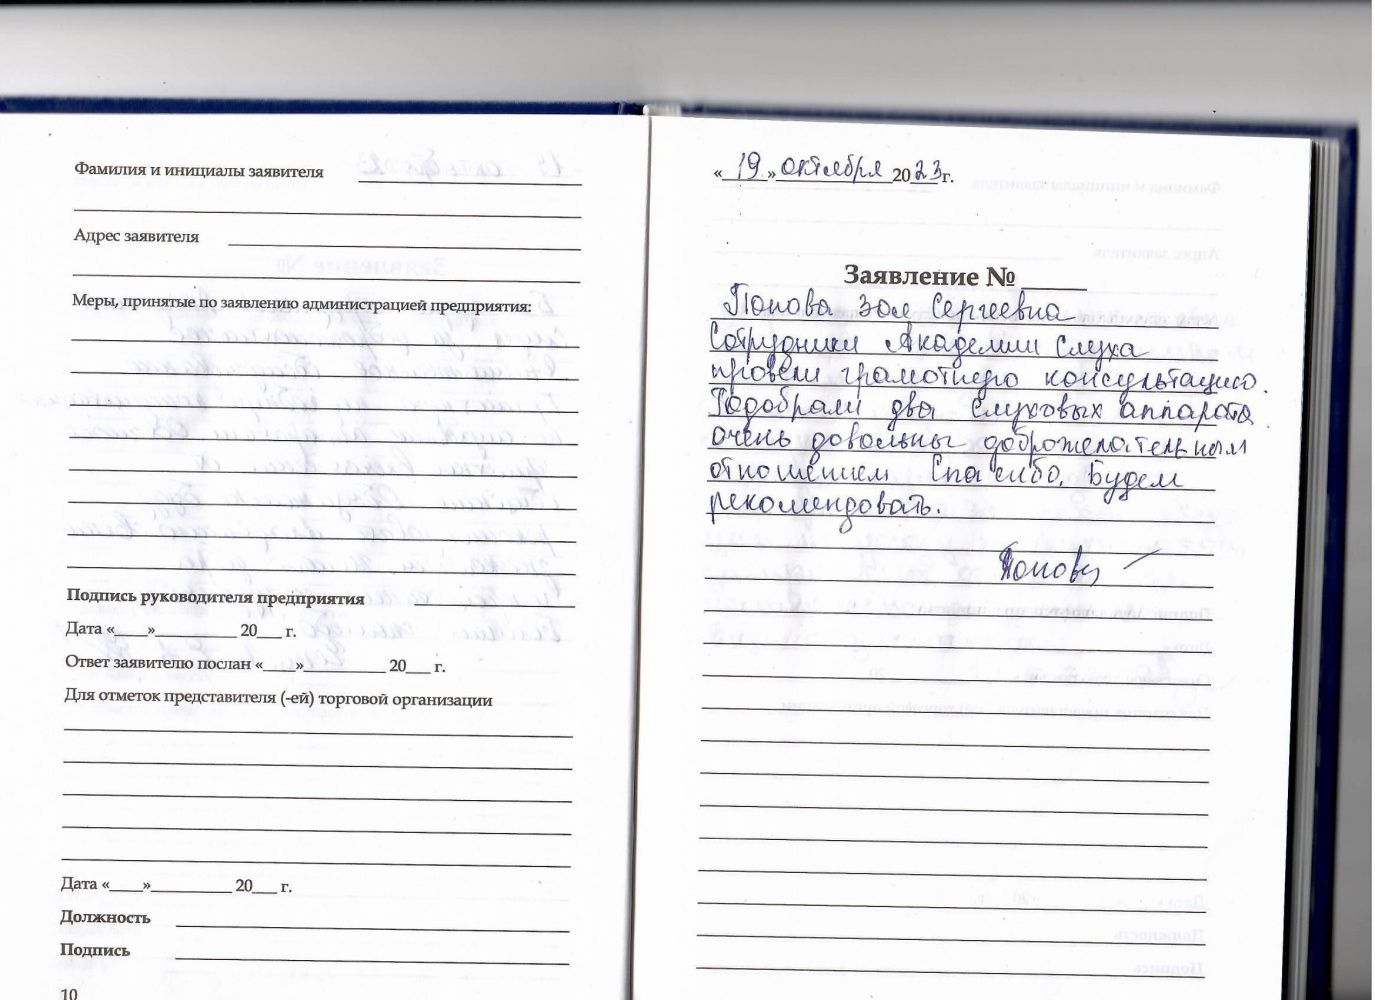 Фамилия и инициалы заявителя
Адрес заявителя
Меры, принятые по заявлению администрацией предприятия:
Подпись руководителя предприятия
Дата «____»__________ 20___ г.
Ответ заявителю послан «____»__________ 20___ г.
Для отметок представителя (-ей) торговой организации
Дата «____»__________ 20___ г.
Должность
Подпись
10
« 19 » октября 2023 г.
Заявление №
Попова Зоя Сергеевна
Сотрудники Академии Слуха
провели грамотную консультацию.
Подобрали два слуховых аппарата
очень довольны доброжелательным
отношением Спасибо. Будем
рекомендовать.
Попова